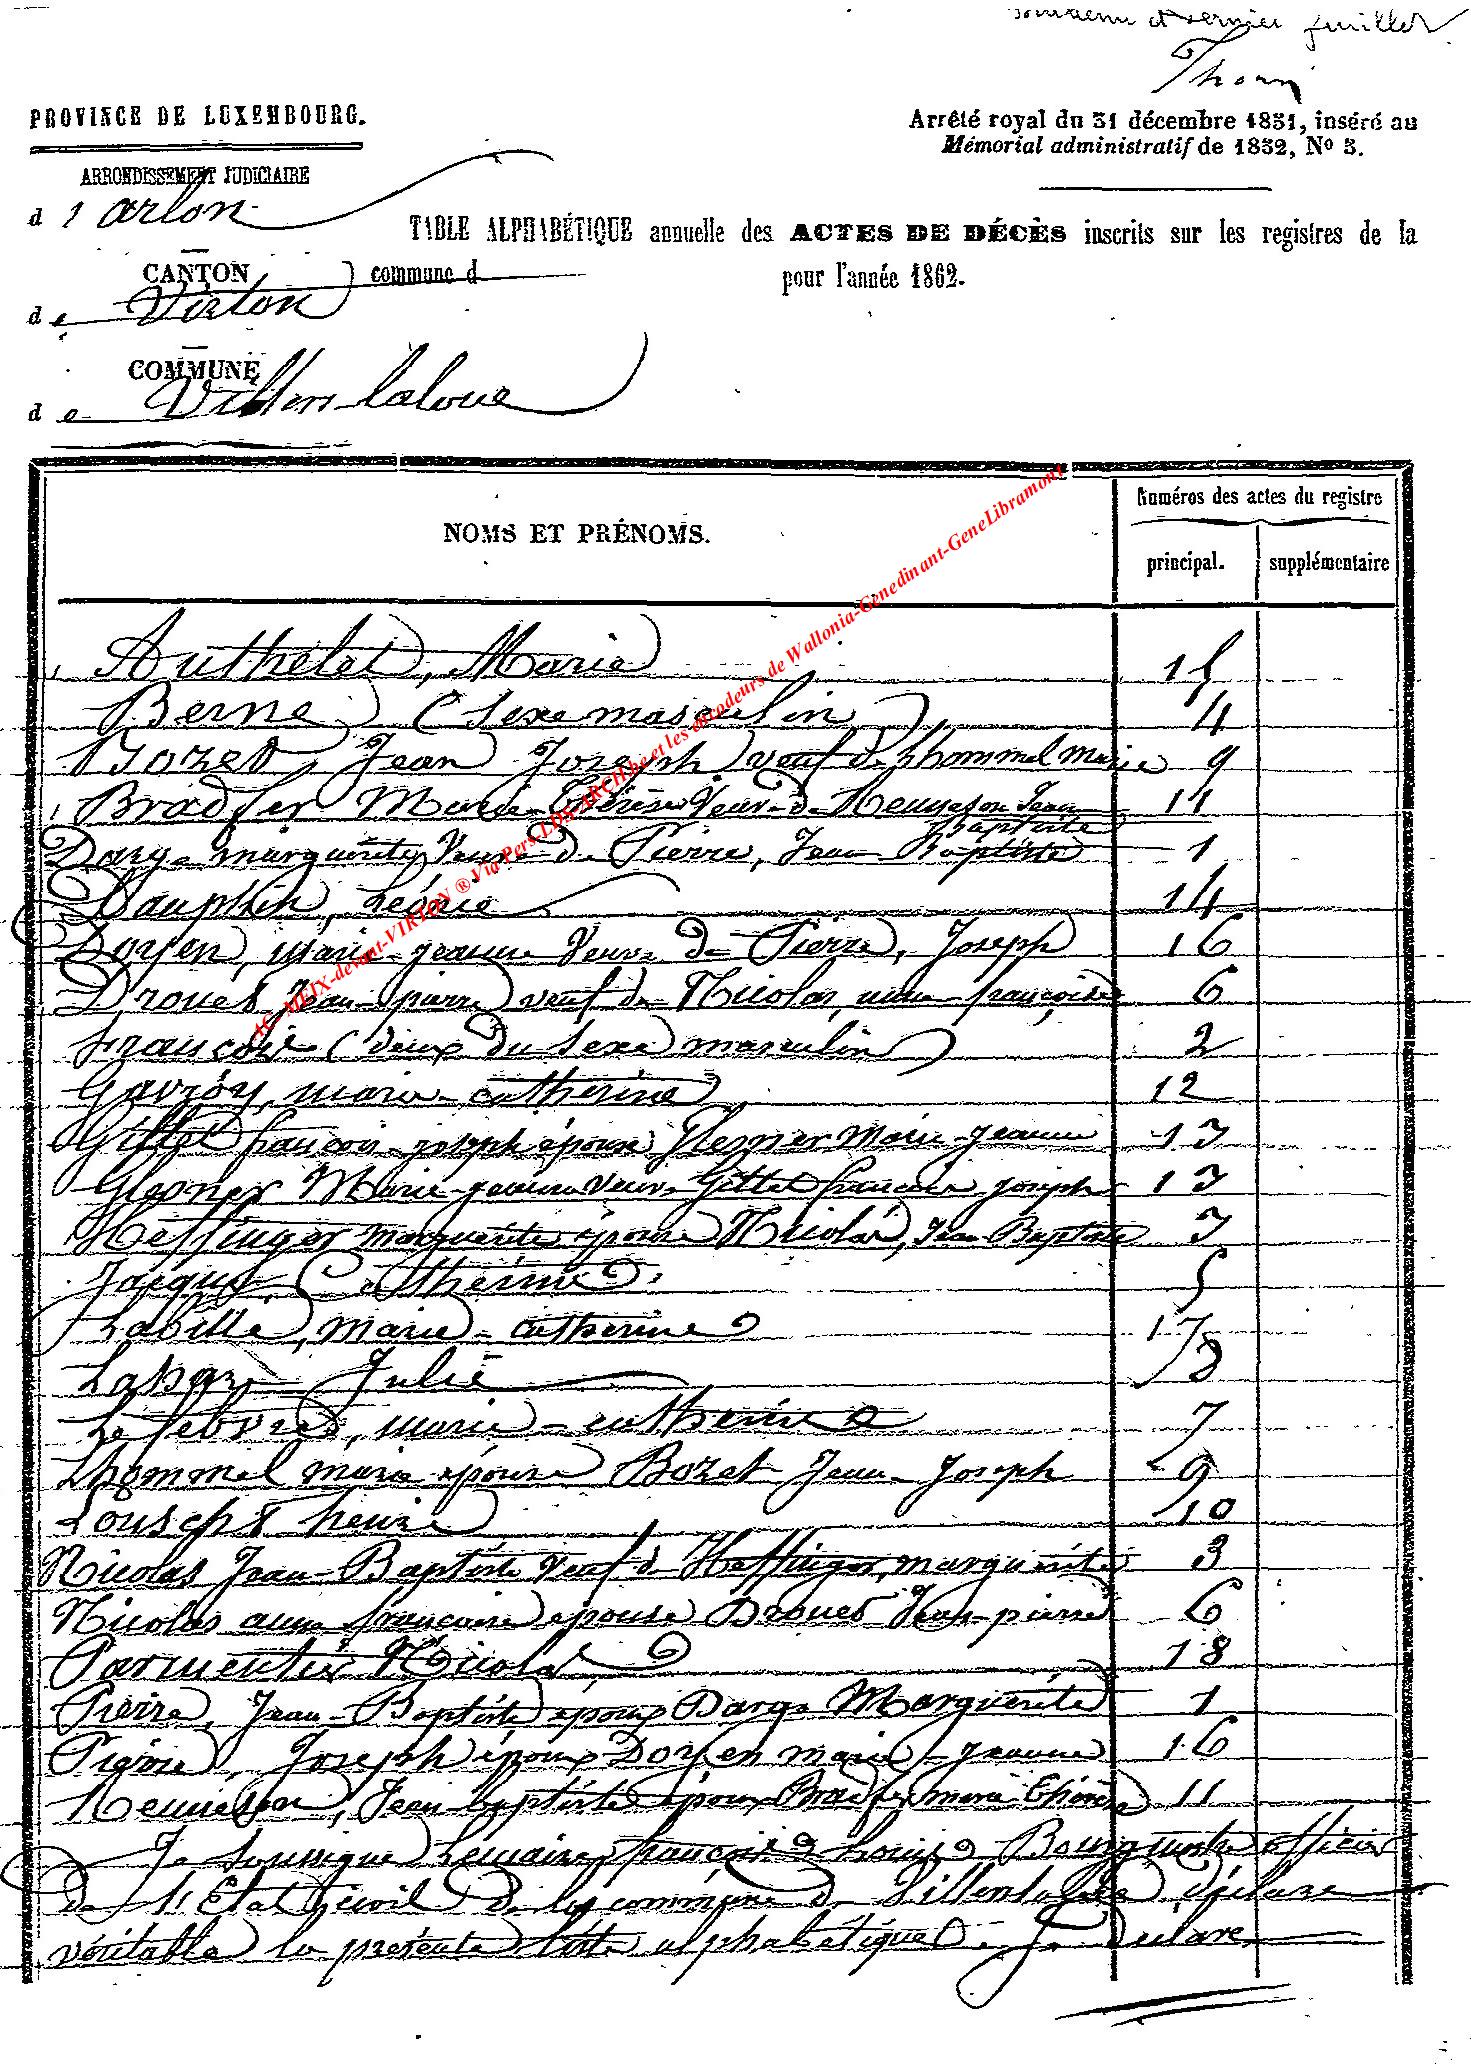 et dernier feuillet
Thorn
PROVINCE DE LUXEMBOURG.
Arrêté royal du 31 décembre 1831, inséré au
Mémorial administratif de 1832, No 3.
ARRONDISSEMENT JUDICIAIRE
d'arlon
TABLE ALPHABÉTIQUE annuelle des ACTES DE DÉCÈS inscrits sur les registres de la
CANTON
commune d
pour l'année 1862.
de Virton
COMMUNE
de Villers-laloue
NOMS ET PRÉNOMS.
Numéros des actes du registre
principal. supplémentaire
AC-MEIX-devant-VIRTON ® Via Pers-LDS-ARCH.be et les encodeurs de Wallonia-Genedinant-GeneLibramont
Authelet, Marie 15
Berne (sexe masculin) 4
Bozet, Jean Joseph veuf de Lhommel Marie 9
Bradfer Marie-Thérèse Veuve de Remeson Jean baptiste 11
Darge marguerite Veuve de Pierre, Jean Baptiste 1
Dauphin, Léonie 14
Doyen, marie-jeanne Veuve de Pierre, Joseph 16
Drouet Jean-pierre veuf de Nicolas, anne-françoise 6
François (deux du sexe masculin) 2
Gavroy, marie-catherine 12
Gillet françois-joseph époux Glesner Marie-Jeanne 13
Glesner Marie-jeanne veuve Gillet françois-joseph 13
Heffinger marguerite épouse Nicolas, Jean-Baptiste 3
Jacques, Catherine 5
Labille, marie-catherine 17
Lahaye Julie 8
Lefebvre, marie-catherine 7
Lhommel marie épouse Bozet Jean-Joseph 9
Louscht henri 10
Nicolas Jean-Baptiste Veuf de Heffinger, marguerite 3
Nicolas anne françoise épouse Drouet Jean-pierre 6
Parmentier Nicolas 18
Pierre, Jean-Baptiste époux Darge Marguerite 1
Pierre, Joseph époux Doyen marie-jeanne 16
Remeson, Jean baptiste époux Bradfer marie Thérèse 11
Je soussigné Lemaire, françois Louis Bourgmestre officier
de l'Etat civil de la commune de Villers laloue déclare
véritable la présente liste alphabétique. Je déclare